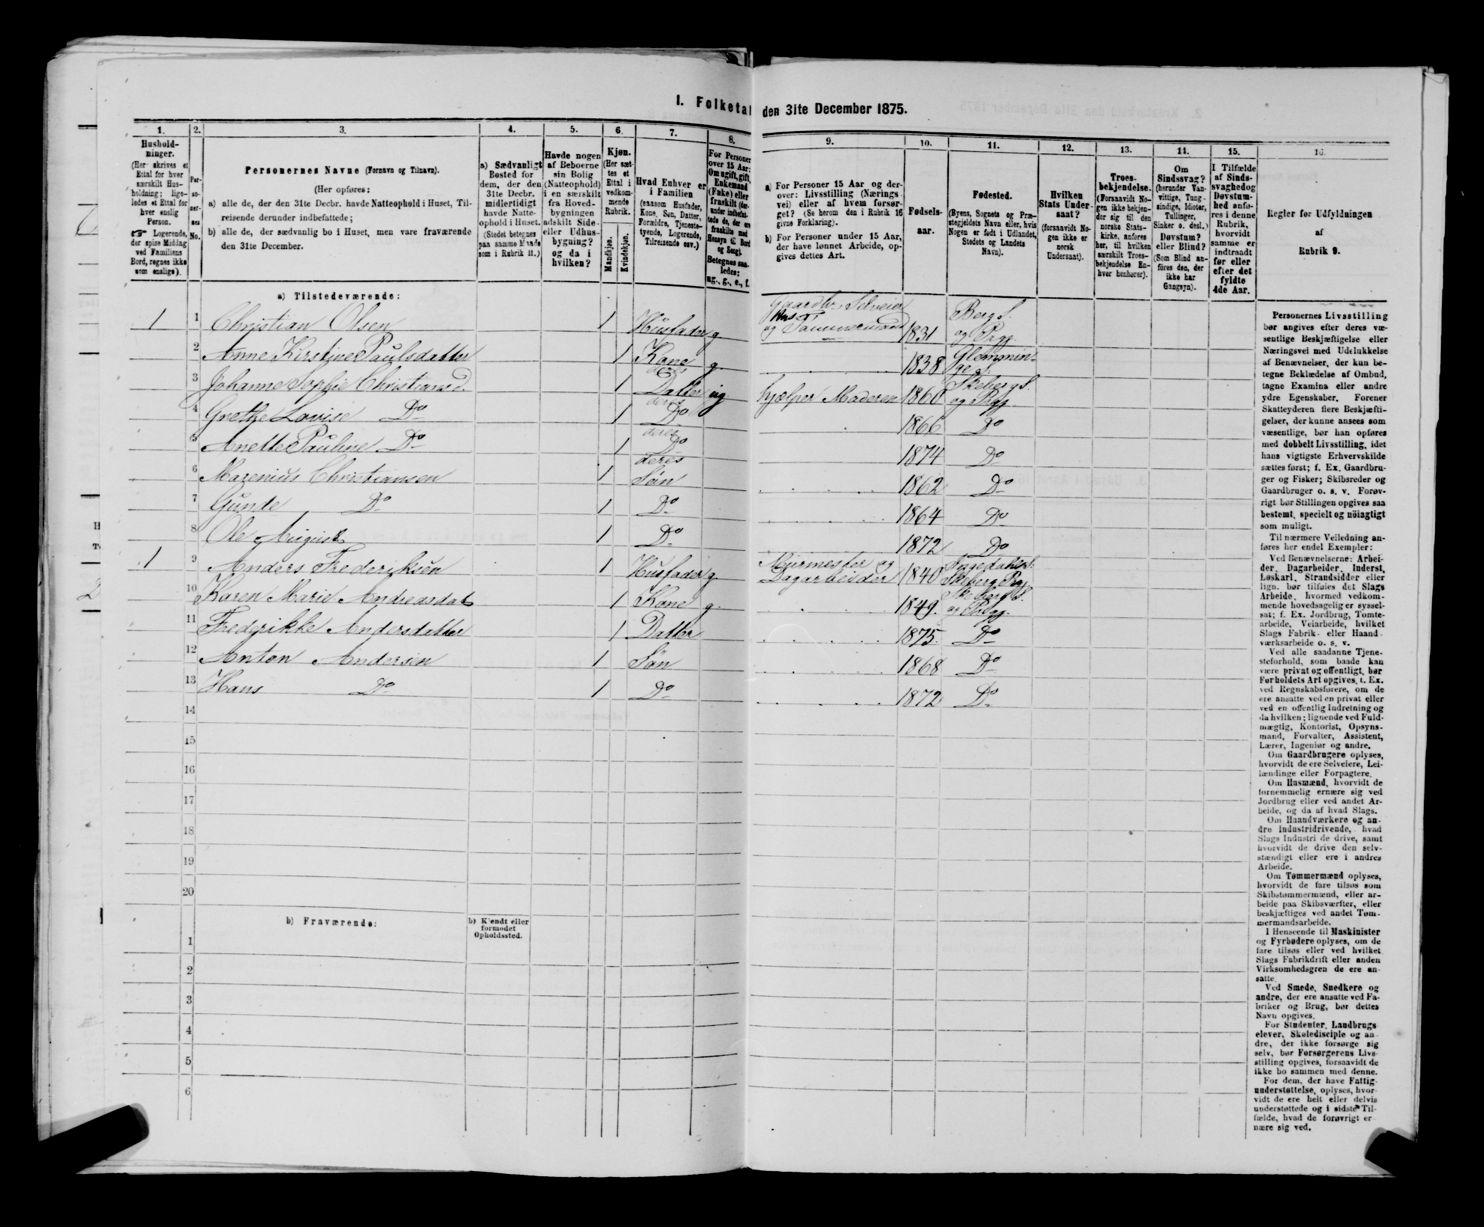 I. Folketal den 31te December 1875.
1. 2. 3. 4. 5. 6. 7. 8. 9. 10. 11. 12. 13. 14. 15. 16.
Husholdninger.
(Her skrives et Ettal for hver særskilt Husholdning; ligeledes et Ettal for hver enslig Person.
☞ Logerende, der spise Middag ved Familiens Bord, regnes ikke som enslige).
Personernes No.
Personernes Navne (Fornavn og Tilnavn).
(Her opføres:
a) alle de, der den 31te Decbr. havde Natteophold i Huset, Tilreisende derunder indbefattede;
b) alle de, der sædvanlig bo i Huset, men vare fraværende den 31te December.
a) Sædvanligt Bosted for dem, der den 31te Decbr. midlertidigt havde Natteophold i Huset. (Stedet betegnes paa samme Maade som i Rubrik 11.)
Havde nogen af Beboerne sin Bolig (Natteophold) i en særskilt fra Hovedbygningen adskilt Side- eller Udhusbygning? og da i hvilken?
Kjøn.
(Her sættes et Ettal i vedkommende Rubrik.
Mandkjøn.
Kvindekjøn.
Hvad Enhver er i Familien
(saasom Husfader, Kone, Søn, Datter, Forældre, Tjenestetyende, Logerende, Tilreisende osv.)
For Personer over 15 Aar: Om ugift, gift, Enkemand (Enke) eller fraskilt
Betegnes saaledes: ug., g., e., f.
a) For Personer 15 Aar og derover: Livsstilling (Næringsvei) eller af hvem forsørget? (Se herom den i Rubrik 16 givne Forklaring).
b) For Personer under 15 Aar, der have lønnet Arbeide, opgives dettes Art.
Fødselsaar.
Fødested.
(Byens, Sognets og Præstegjeldets Navn eller, hvis Nogen er født i Udlandet, Stedets og Landets Navn).
Hvilken Stats Undersaat?
(forsaavidt Nogen ikke er norsk Undersaat).
Troesbekjendelse.
(Forsaavidt Nogen ikke bekjender sig til den norske Statskirke, anføres her, til hvilken særskilt Troesbekjendelse Enhver henhører).
Om Sindssvag?
(herunder Vanvittige, Tungsindige, Idioter, Tullinger, Sinker o. desl.)
Døvstum? eller Blind?
(Som Blind anføres den, der ikke har Gangsyn).
I Tilfælde af Sindssvaghed og Døvstumhed anføres i denne Rubrik, hvorvidt samme er indtraadt før eller efter det fyldte 4de Aar.
Regler for Udfyldningen
af
Rubrik 9.
a) Tilstedeværende:
1 1 Christian Olsen 1 Husfader g Gaardbr. Selveier og Tømmermand 1831 Berg S. og Pgj
2 Anne Kirstine Paulsdatter 1 Kone g. 1838 Glemminge s.
3 Johanne Sophie Christiansd 1 deres Datter ug hjælper Moderen 1860 Skebergs S. og Pgj.
4 Grethe Lovise Do 1 deres Do 1866 Do
5 Anette Pauline Do 1 deres Do 1874 Do
6 Marenius Christiansen 1 deres Søn 1862 Do
7 Gunde Do 1 Do 1864 Do
8 Ole August 1 Do 1872 Do
1 9 Anders Frederiksen 1 Husfader g Muurmester og Dagarbeider 1840 Skeberg Pgj
10 Karen Marie Andreasdat 1 Kone g. 1849.
11 Frederikke Andersdatter 1 Datter 1875. Do
12 Anton Andersen 1 Søn 1868 Do
13 Hans Do 1 Do 1872 Do
14
15
16
17
18
19
20
b) Fraværende:
b) Kjendt eller formodet Opholdssted.
1
2
3
4
5
6
Personernes Livsstilling
bør angives efter deres væ-
sentlige Beskjæftigelse eller
Næringsvei med Udelukkelse
af Benævnelser, der kun be-
tegne Beklædelse af Ombud,
tagne Examina eller andre
ydre Egenskaber. Forener
Skatteyderen flere Beskjæfti-
gelser, der kunne ansees som
væsentlige, bør han opføres
med dobbelt Livsstilling, idet
hans vigtigste Erhvervskilde
sættes først; f. Ex. Gaardbru-
ger og Fisker; Skibsreder og
Gaardbruger o. s. v. Forøv-
rigt bør Stillingen opgives saa
bestemt, specielt og nøiagtigt
som muligt.
Til nærmere Veiledning an-
føres her endel Exempler:
Ved Benævnelserne: Arbei-
der, Dagarbeider, Inderst,
Løskarl, Strandsidder eller
lign. bør tilføies det Slags
Arbeide, hvormed vedkom-
mende hovedsagelig er syssel-
sat; f. Ex. Jordbrug, Tomte-
arbeide, Veiarbeide, hvilket
Slags Fabrik- eller Haand-
værksarbeide o. s. v.
Ved alle saadanne Tjene-
steforhold, som baade kan
være privat og offentligt, bør
Forholdets Art opgives, t. Ex.
ved Regnskabsførere, om de
ere ansatte ved en privat eller
ved en offentlig Indretning og
da hvilken; lignende ved Fuld-
mægtig, Kontorist, Opsyns-
mand, Forvalter, Assistent,
Lærer, Ingeniør og andre.
Om Gaardbrugere oplyses,
hvorvidt de ere Selveiere, Lei-
lændinge eller Forpagtere.
Om Husmænd, hvorvidt de
fornemmelig ernære sig ved
Jordbrug eller ved andet Ar-
beide, og da af hvad Slags.
Om Haandværkere og an-
dre Industridrivende, hvad
Slags Industri de drive, samt
hvorvidt de drive den selv-
stændigt eller ere i andres
Arbeide.
Om Tømmermænd oplyses,
hvorvidt de fare tilsøs som
Skibstømmermænd, eller ar-
beide paa Skibsværfter, eller
beskjæftiges ved andet Tøm-
mermandsarbeide.
I Henseende til Maskinister
og Fyrbødere oplyses, om de
fare tilsøs eller ved hvilket
Slags Fabrikdrift eller anden
Virksomhedsgren de ere an-
satte.
Ved Smede, Snedkere og
andre, der ere ansatte ved Fa-
briker og Brug, bør dettes
Navn opgives.
For Studenter, Landbrugs-
elever, Skoledisciple og an-
dre, der ikke forsørge sig
selv, bør Forsørgerens Livs-
stilling opgives, forsaavidt de
ikke bo sammen med denne.
For dem, der have Fattig-
understøttelse, oplyses, hvor-
vidt de ere helt eller delvis
understøttede og i sidste Til-
fælde, hvad de forøvrigt er-
nære sig ved.